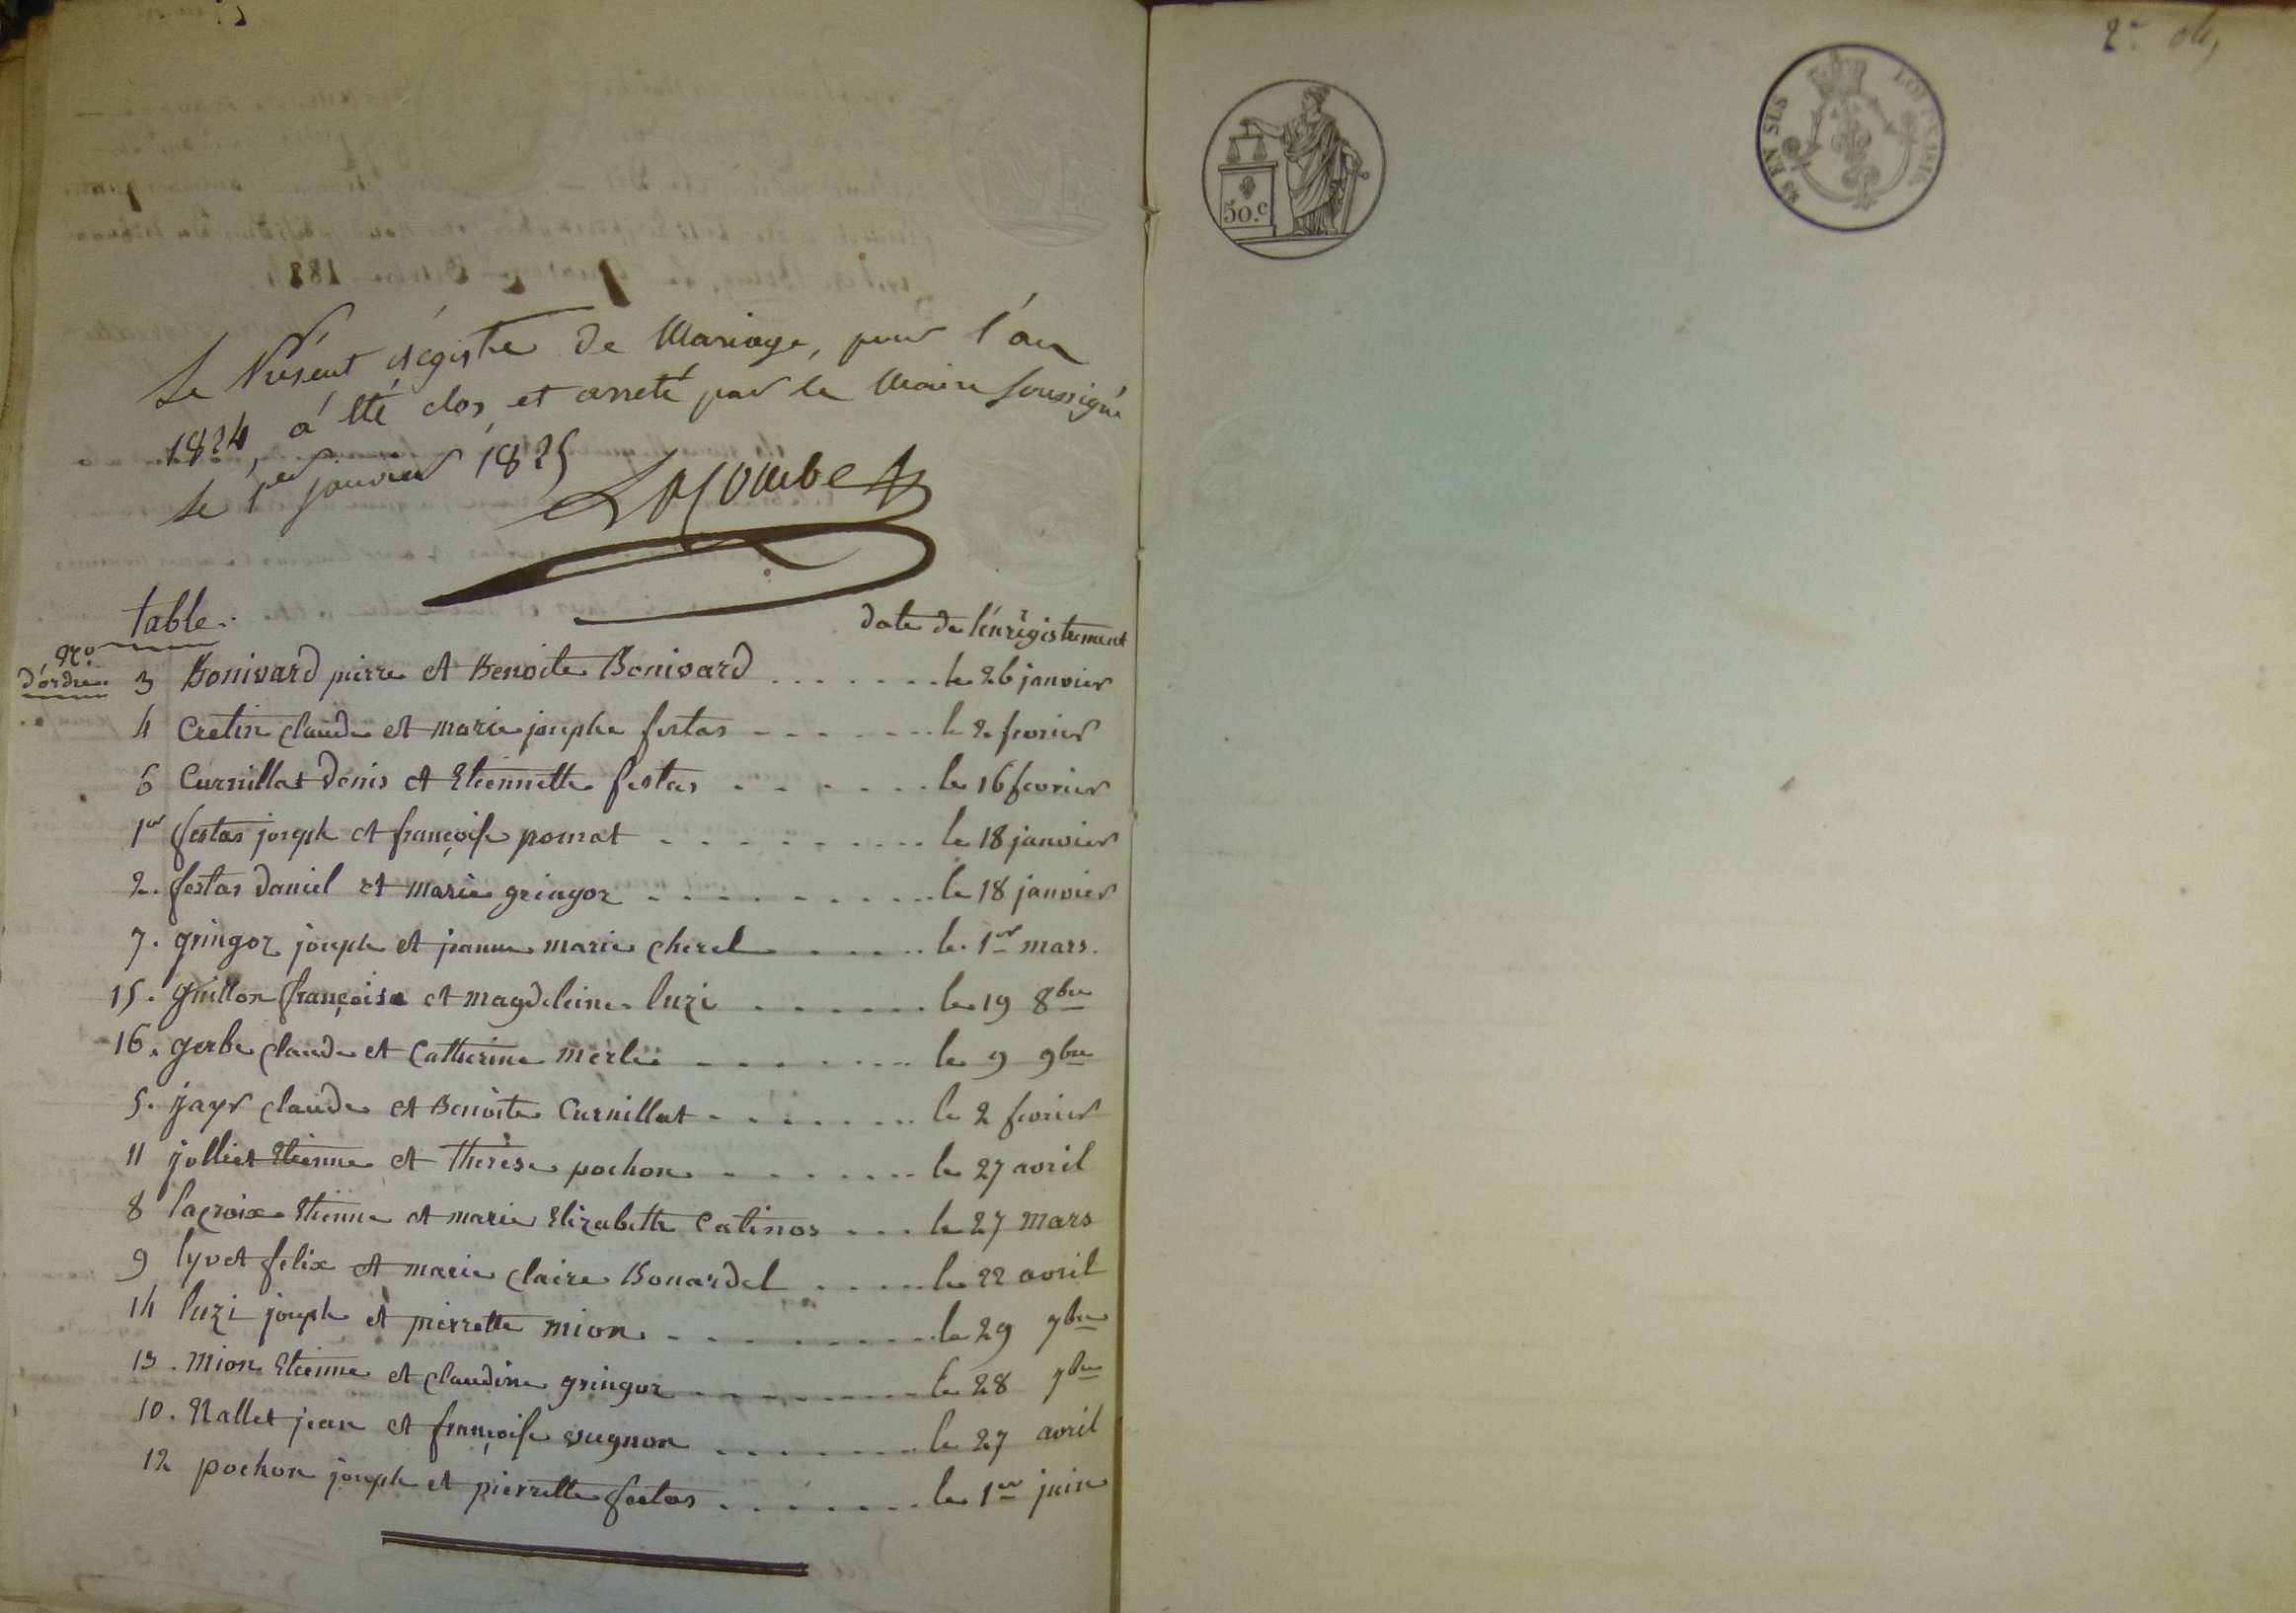 Le Présent régistre de Mariage, pour l'an
1824, a été clos et arreté par le Maire soussigné
le 1er janvier 1825
Lacombe
table.
No d'ordre.
date de l'enrégistrement
3 Bonivard pierre et Benoite Bonivard ....... le 26 janvier
4 Cretin claude et marie josephe festas ....... le 2 fevrier
6 Curnillat Denis et Etiennette festas ...... le 16 fevrier
1er festas joseph et françoise pornat ......... le 18 janvier
2. festas Daniel et marie gringoz ......... le 18 janvier
7. gringoz joseph et jeanne marie cherel ..... le 1er mars.
15. guillon françois et magdeleine luzi ...... le 19 8bre
16. gerbe claude et Catherine merle ....... le 9 9bre
5. jayr claude et Benoite Curnillat ....... le 2 fevrier
11 jolliet Etienne et thérèse pochon ....... le 27 avril
8 lacroix Etienne et marie Elizabette Catinos ... le 27 mars
9 lyvet felix et marie claire Bonardel ..... le 22 avril
14 luzi joseph et pierrette mion ......... le 29 7bre
13. Mion Etienne et claudine gringoz ......... le 28 7bre
10. Nallet jean et françoise vugnon ....... le 27 avril
12 pochon joseph et pierrette festas ....... le 1er juin
50.c
2e